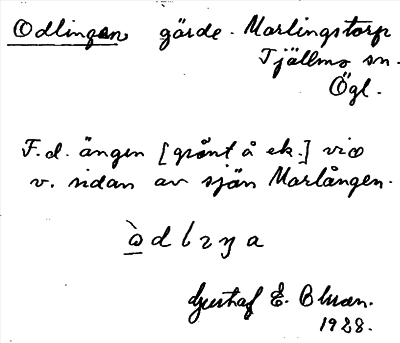 Odlingen gärde. Marlingstorp
Tjällmo sn.
Ögl.
F.d. ängen [grånt å ek.] vid
v. sidan av sjön Marlången.
Gustaf E. Blman.
1928.